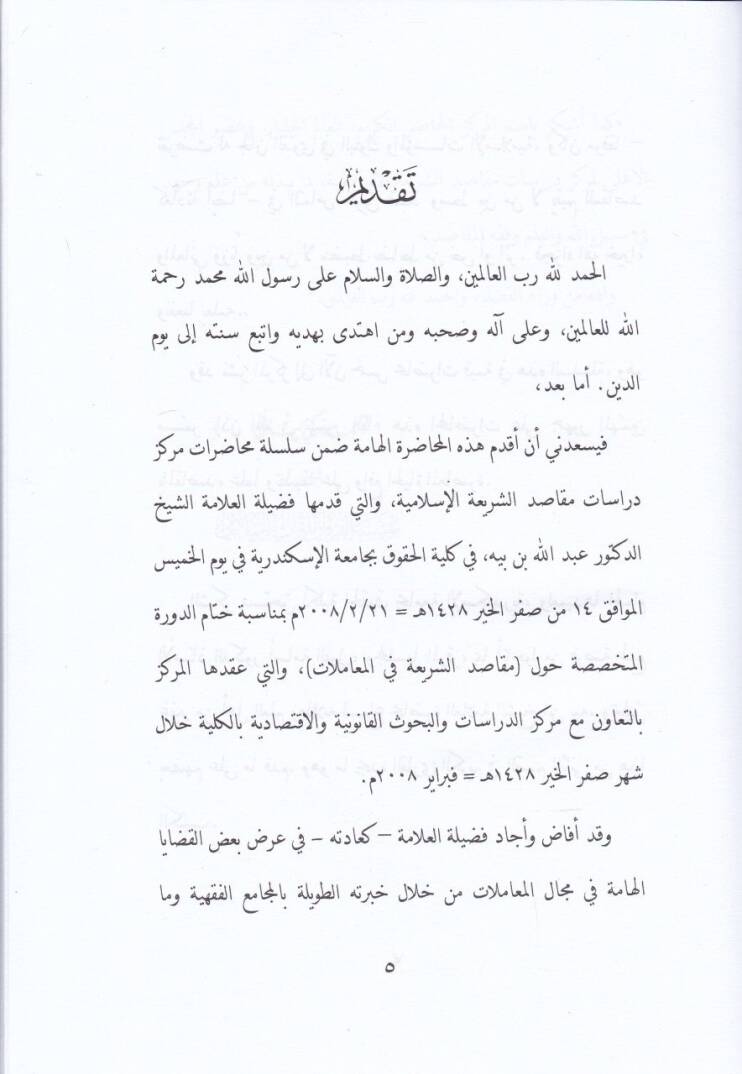 تَقْدِيْم
الحمد لله رب العالمين، والصلاة والسلام على رسول الله محمد رحمة
الله للعالمين، وعلى آله وصحبه ومن اهتدى بهديه واتبع سنته إلى يوم
الدين. أما بعد،
فيسعدني أن أقدم هذه المحاضرة الهامة ضمن سلسلة محاضرات مركز
دراسات مقاصد الشريعة الإسلامية، والتي قدمها فضيلة العلامة الشيخ
الدكتور عبد الله بن بيه، في كلية الحقوق بجامعة الإسكندرية في يوم الخميس
الموافق ١٤ من صفر الخير ١٤٢٨هـ = ٢٠٠٨/٢/٢١م بمناسبة ختام الدورة
المتخصصة حول (مقاصد الشريعة في المعاملات)، والتي عقدها المركز
بالتعاون مع مركز الدراسات والبحوث القانونية والاقتصادية بالكلية خلال
شهر صفر الخير ١٤٢٨هـ = فبراير ٢٠٠٨م.
وقد أفاض وأجاد فضيلة العلامة – كعادته – في عرض بعض القضايا
الهامة في مجال المعاملات من خلال خبرته الطويلة بالمجامع الفقهية وما
٥